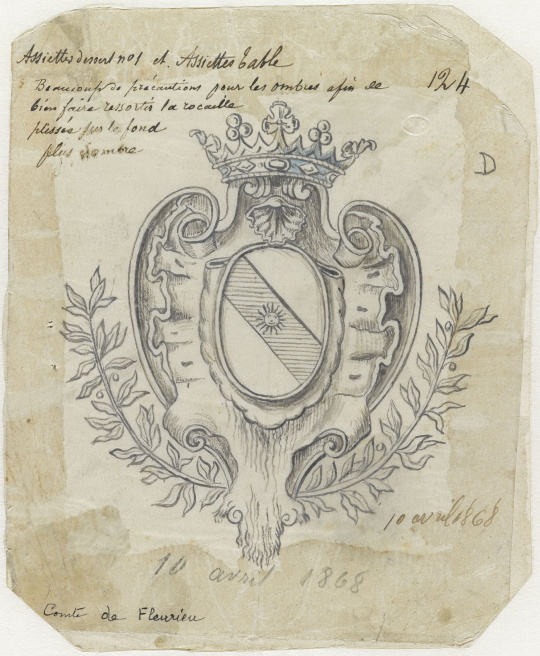 Assiettes dessert no 1 et Assiettes table
Beaucoup de précautions pour les ombres afin de
bien faire ressortir la rocaille
plissée sur le fond
plus sombre
124
D
10 avril 1868
10 avril 1868
Comte de Fleurieu